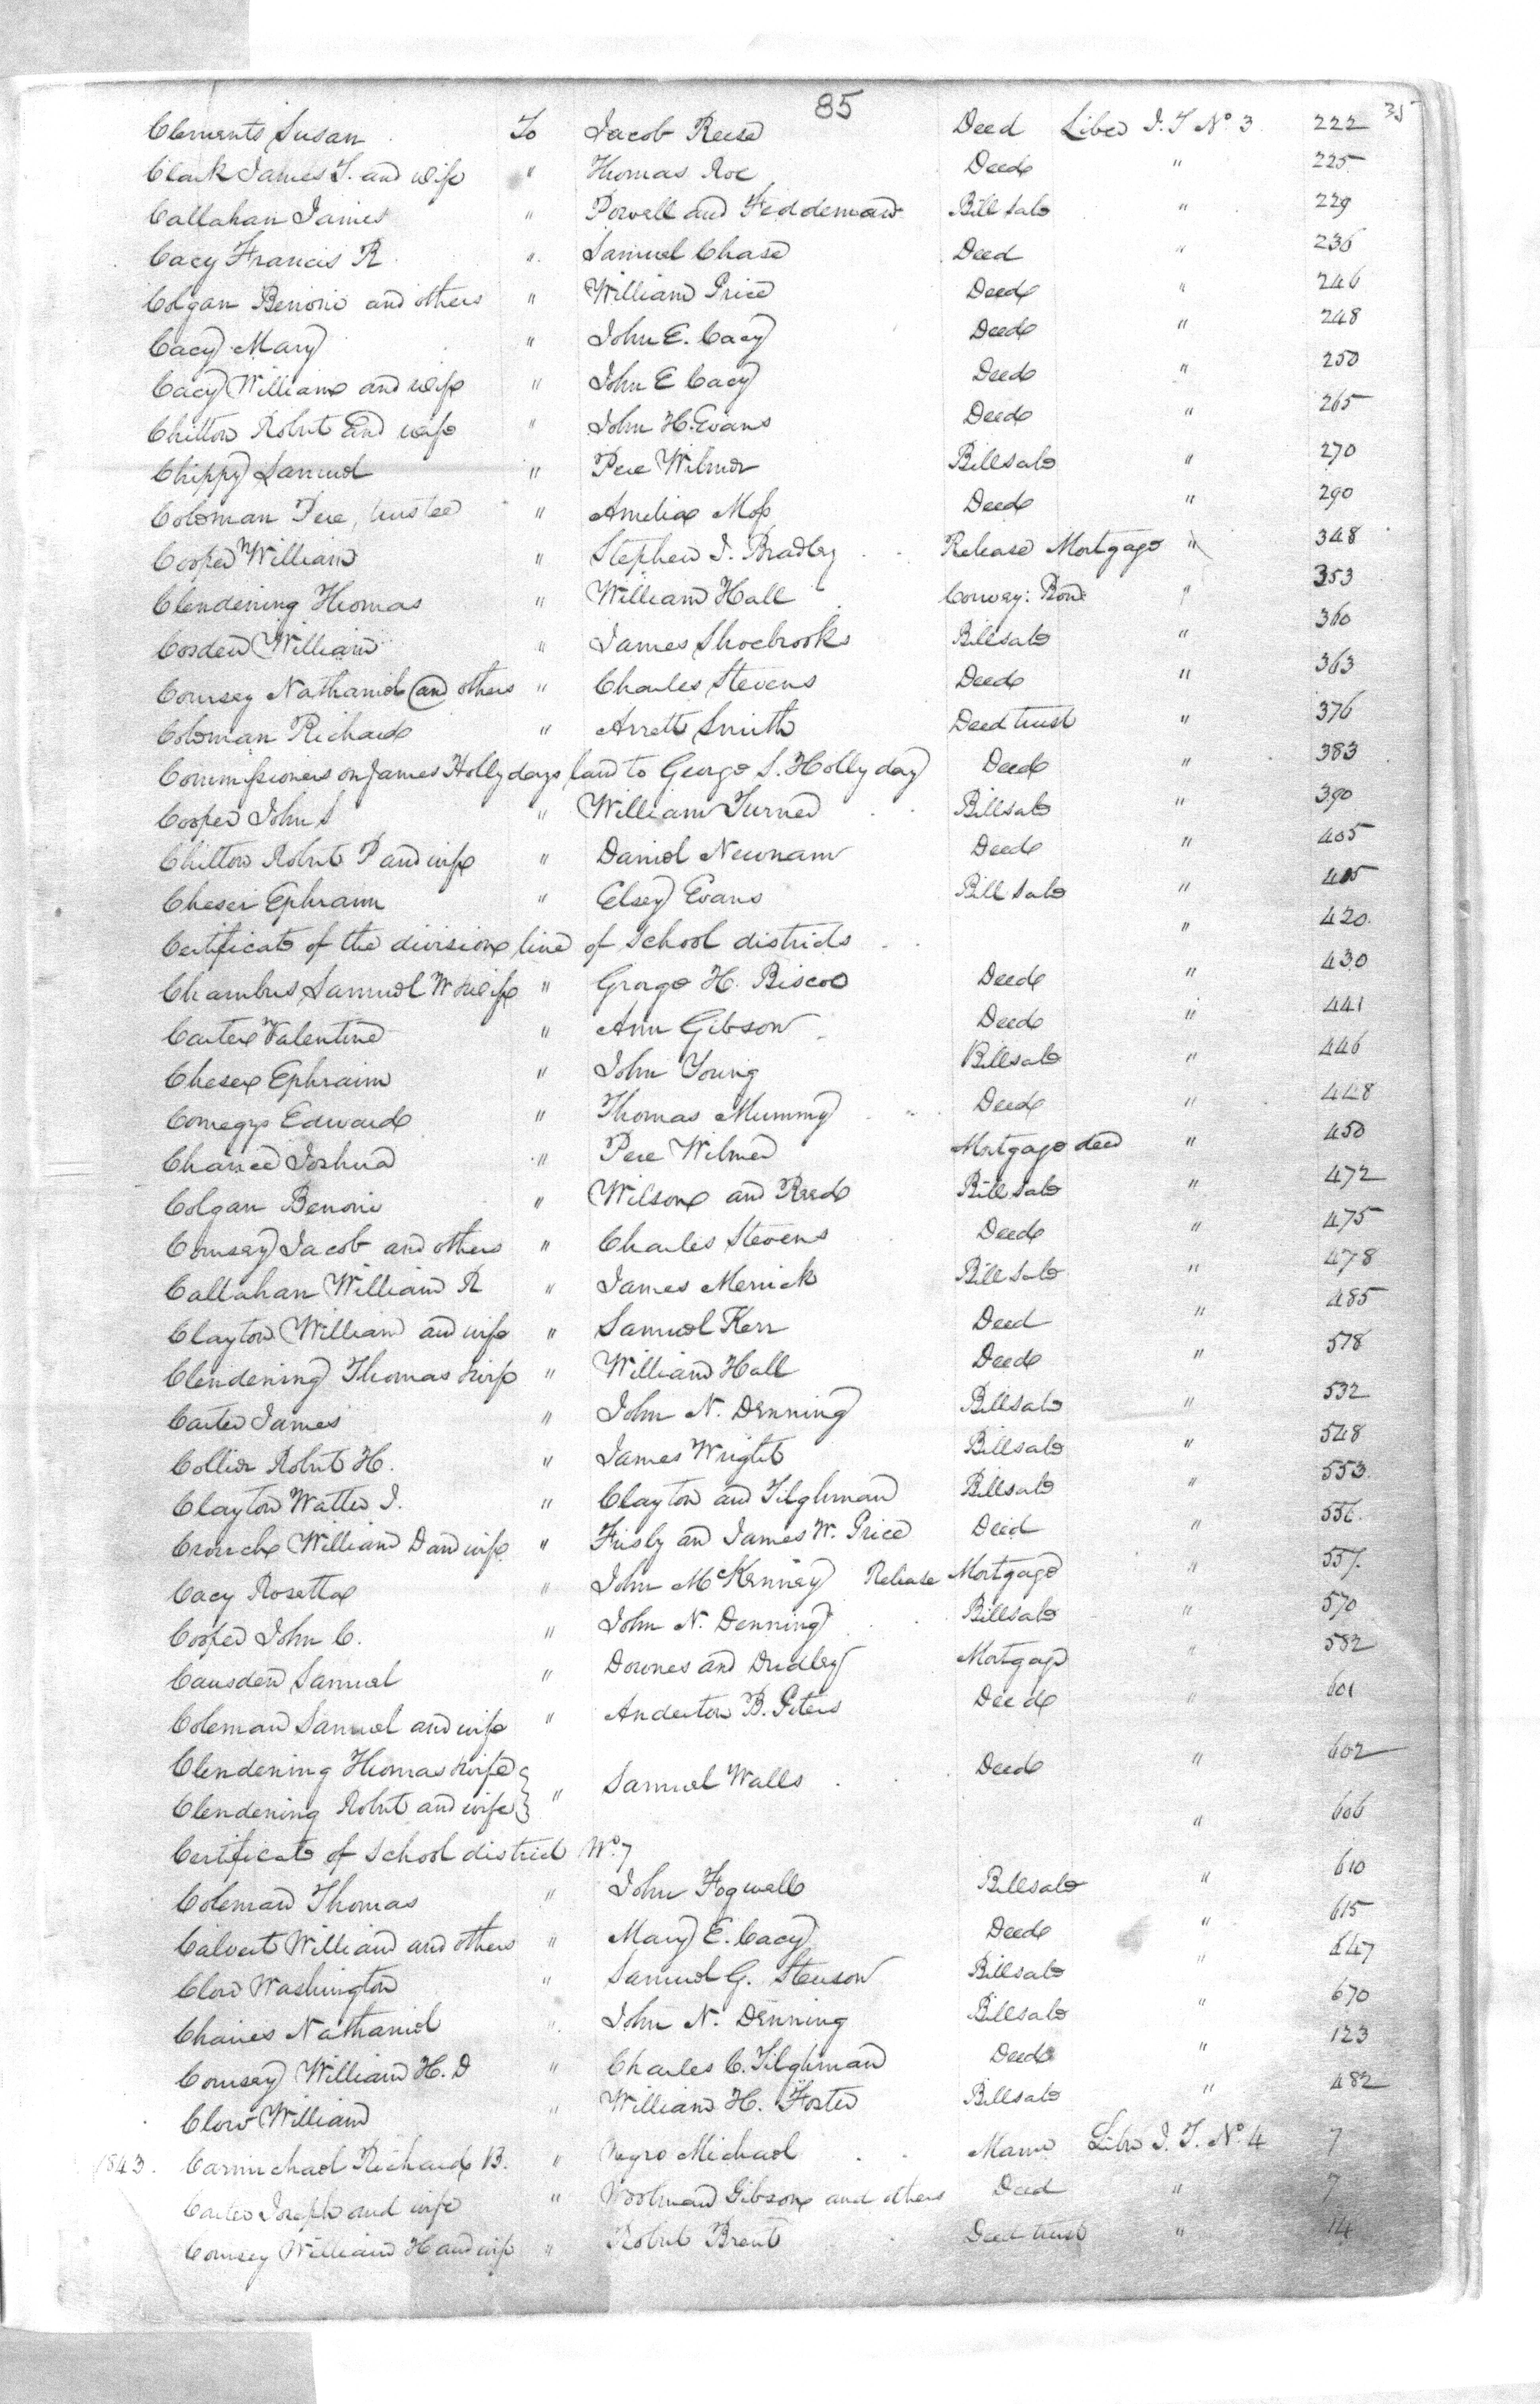 85 35
Clements Susan To Jacob Reese Deed Liber J. T No 3 222
Clark James T. and wife " Thomas Roe Deed " 225
Callahan James " Powell and Feddeman Bill Sale " 229
Cacy Francis R " Samuel Chase Deed " 236
Colgan Benoni and others " William Price Deed " 246
Cacy Mary " John E. Cacy Deed " 248
Cacy William and wife " John E Cacy Deed " 250
Chilton Robert and wife " John H. Evans Deed " 265
Chippy Samuel " Pere Wilmer Bill sale " 270
Coleman Pere, trustee " Amelia Moss Deed " 290
Cooper William " Stephen J. Bradley Release Mortgage " 348
Clendening Thomas " William Hall Convey: Bond " 353
Cosden William " James Shoebrooks Bill sale " 360
Coursey Nathaniel and others " Charles Stevens Deed " 363
Coleman Richard " Arrett Smith Deed trust " 376
Commissioners on James Hollydays land to George S. Hollyday Deed " 383
Cooper John S " William Turner Bill sale " 390
Chilton Robert P and wife " Daniel Newnam Deed " 405
Cheser Ephraim " Elsey Evans Bill Sale " 415
Certificate of the division line of School districts " 420
Chambers Samuel W & wife " George H. Biscoe Deed " 430
Carter Valentine " Ann Gibson Deed " 441
Cheser Ephraim " John Young Bill sale " 446
Comegys Edward " Thomas Mummy Deed " 448
Chance Joshua " Pere Wilmer Mortgage deed " 450
Colgan Benoni " Wilson and Reed Bill Sale " 472
Coursey Jacob and others " Charles Stevens Deed " 475
Callahan William R " James Merrick Bill Sale " 478
Clayton William and wife " Samuel Kerr Deed " 485
Clendening Thomas & wife " William Hall Deed " 578
Carter James " John N. Denning Bill sale " 532
Collier Robert H. " James Wright Bill sale " 548
Clayton Walter J. " Clayton and Tilghman Bill sale " 553
Crouch William D and wife " Frisby and James W. Price Deed " 556
Cacy Rosetta " John McKenney Release Mortgage " 557
Cooper John C. " John N. Denning Bill sale " 570
Causden Samuel " Downes and Dudley Mortgage " 582
Coleman Samuel and wife " Anderton B. Peters Deed " 601
Clendening Thomas & wife } " Samuel Walls Deed " 602
Clendening Robert and wife }
Certificate of School district No. 7 " 606
Coleman Thomas " John Fogwell Bill sale " 610
Calvert William and others " Mary E. Cacy Deed " 615
Clow Washington " Samuel G. Bill sale " 647
Chaires Nathaniel " John N. Denning Bill sale " 670
Coursey William H. D " Charles C. Tilghman Deed " 123
Clow William " William H. Foster Bill sale " 482
1843. Carmichael Richard B. " Negro Michael Manu Liber J. T. No. 4 7
Carter Joseph and wife " Woolman Gibson and others Deed " 7
Coursey William H and wife " Robert Brent Deed trust " 14